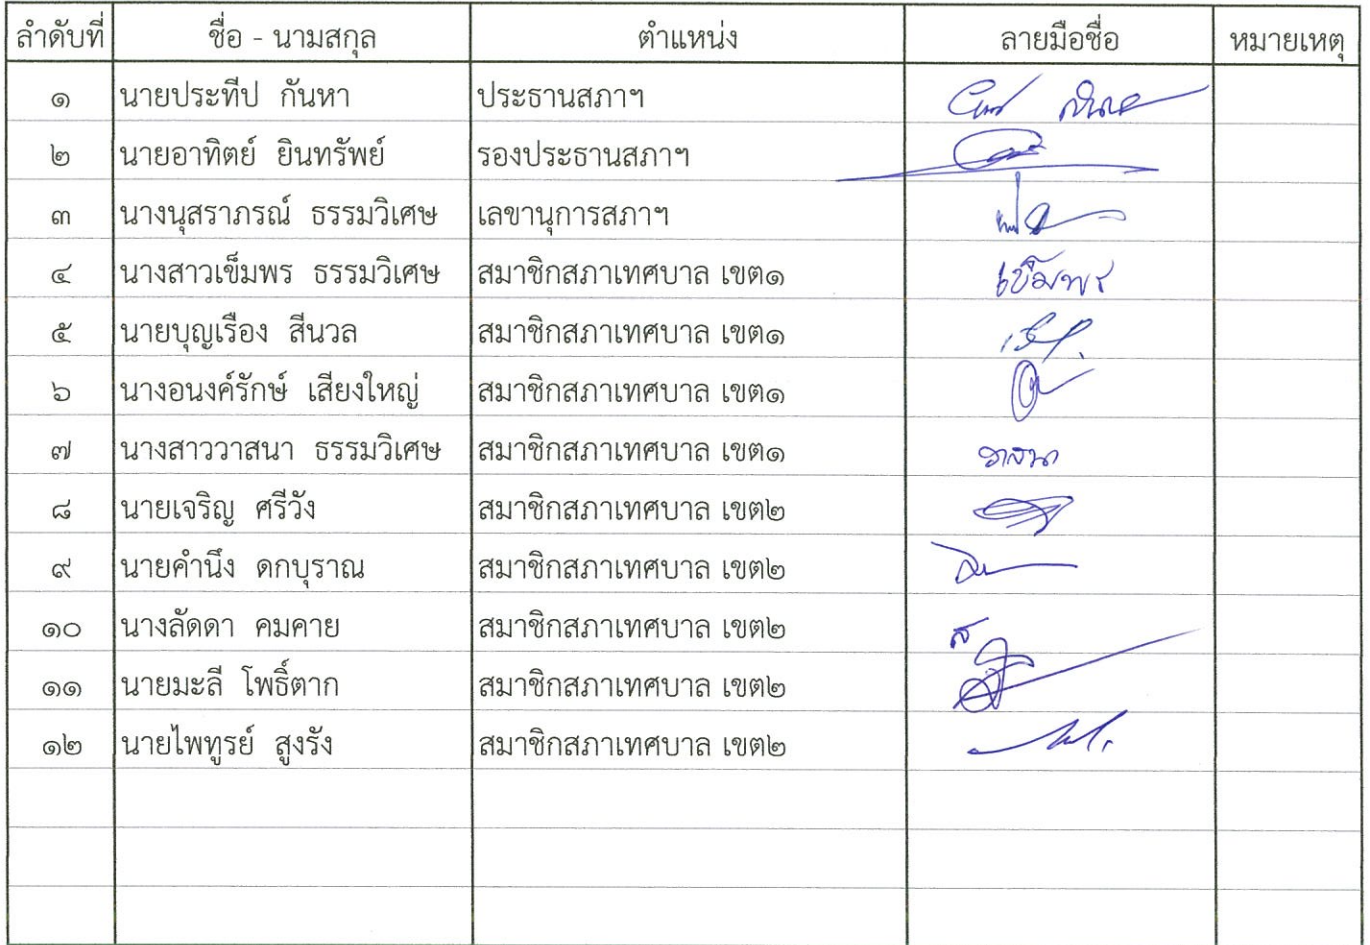 ลำดับที่ ชื่อ - นามสกุล ตำแหน่ง ลายมือชื่อ หมายเหตุ
๑ นายประทีป กันหา ประธานสภาฯ
๒ นายอาทิตย์ ยินทรัพย์ รองประธานสภาฯ
๓ นางนุสราภรณ์ ธรรมวิเศษ เลขานุการสภาฯ
๔ นางสาวเข็มพร ธรรมวิเศษ สมาชิกสภาเทศบาล เขต๑ เข็มพร
๕ นายบุญเรือง สีนวล สมาชิกสภาเทศบาล เขต๑
๖ นางอนงค์รักษ์ เสียงใหญ่ สมาชิกสภาเทศบาล เขต๑
๗ นางสาววาสนา ธรรมวิเศษ สมาชิกสภาเทศบาล เขต๑ วาสนา
๘ นายเจริญ ศรีวัง สมาชิกสภาเทศบาล เขต๒
๙ นายคำนึง ดกบุราณ สมาชิกสภาเทศบาล เขต๒
๑๐ นางลัดดา คมคาย สมาชิกสภาเทศบาล เขต๒
๑๑ นายมะลี โพธิ์ตาก สมาชิกสภาเทศบาล เขต๒
๑๒ นายไพทูรย์ สูงรัง สมาชิกสภาเทศบาล เขต๒